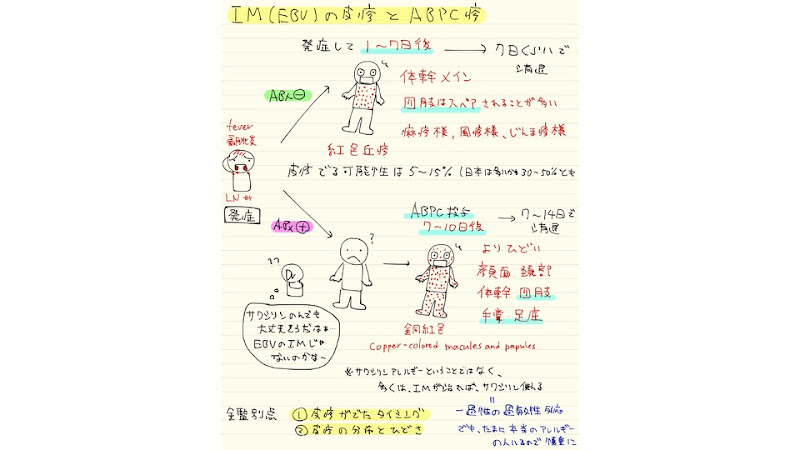 IM(EBV)の皮疹とABPC疹
発症して1〜7日後 → 7日くらいで
消退
ABx⊖
体幹メイン
四肢はスペアされることが多い
麻疹様,風疹様,じんま疹様
紅色丘疹
fever
咽頭炎
LN腫
発症
皮疹でる可能性は5〜15% (日本は多いかも30〜50%とも
ABx⊕
ABPC投与
7〜10日後 → 7〜14日で
消退
?
??
Dr
よりひどい
顔面 頸部
体幹 四肢
手掌・足底
銅紅色
Copper-colored macules and papules
サワシリンのんでも
大丈夫そうだなぁ…
EBVのIMじゃ
ないのかな〜
※サワシリンアレルギーということではなく、
多くは、IMが治れば、サワシリン使える
=
一過性の過敏性反応
でも、たまに本当のアレルギー
の人もいるので慎重に
鑑別点 ①皮疹がでたタイミング
②皮疹の分布とひどさ